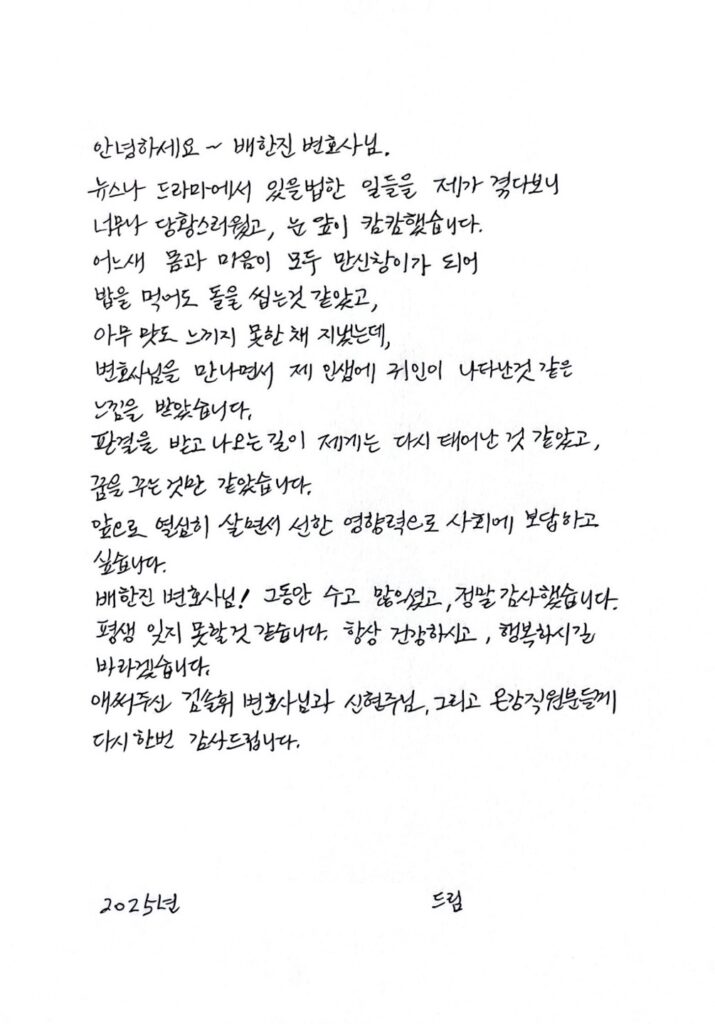 안녕하세요 ~ 배한진 변호사님.
뉴스나 드라마에서 있을법한 일들을 제가 겪다보니
너무나 당황스러웠고, 눈 앞이 캄캄했습니다.
어느새 몸과 마음이 모두 만신창이가 되어
밥을 먹어도 돌을 씹는것 같았고,
아무 맛도 느끼지 못한 채 지냈는데,
변호사님을 만나면서 제 인생에 귀인이 나타난것 같은
느낌을 받았습니다.
판결을 받고 나오는 길이 제게는 다시 태어난 것 같았고,
꿈을 꾸는 것만 같았습니다.
앞으로 열심히 살면서 선한 영향력으로 사회에 보답하고
싶습니다.
배한진 변호사님! 그동안 수고 많으셨고, 정말 감사했습니다.
평생 잊지 못할것 같습니다. 항상 건강하시고, 행복하시길
바라겠습니다.
애써주신 김솔휘 변호사님과 신현주님, 그리고 온강직원분들께
다시 한번 감사드립니다.
2025년 드림